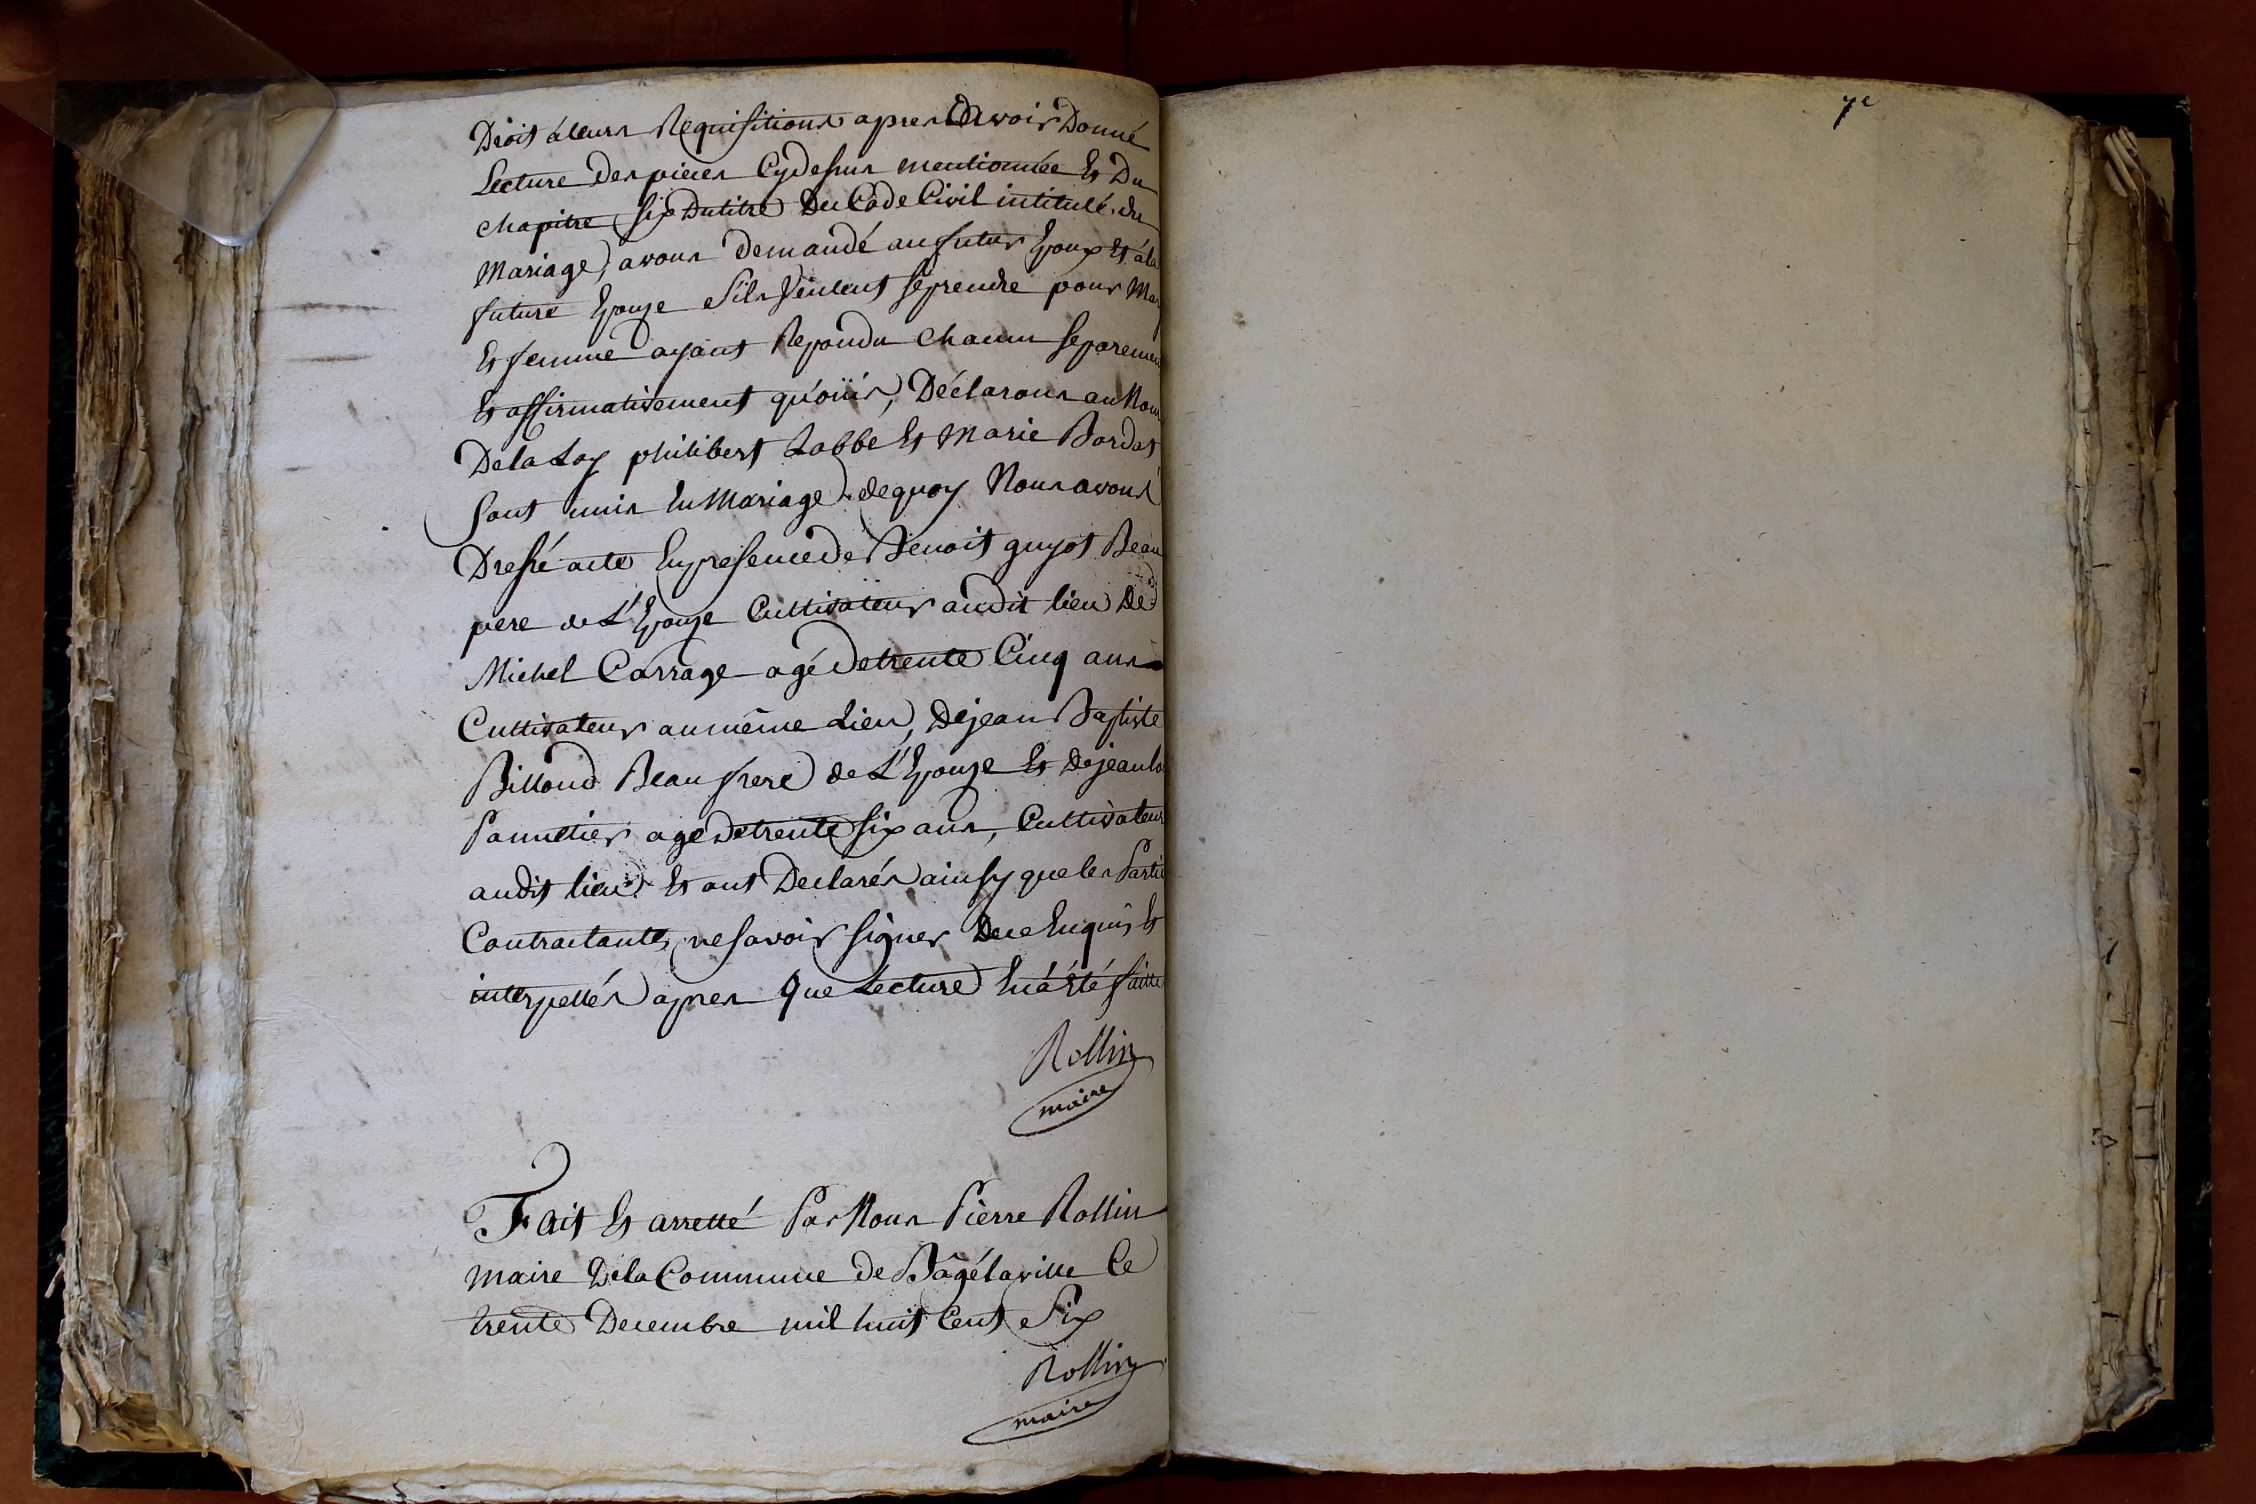 Droit à leurs Requisitions apres avoir Donné
Lecture des pieces Cydessus mentionnée Et Du
chapitre six Dutitre Du Code Civil intitulé du
Mariage, avons demandé au futur Epoux Et à la
future Epouse s'ils Veulent se prendre pour Mary
Et femme ayant Repondu chacun separement
Et affirmativement qu'ouis, Déclarons au Nom
De la Loy philibert Labbe Et Marie Bordat
Sont unis En Mariage. de quoy Nous avons
Dressé acte En presence de Benoit guyot Beau
pere de L'Epouse Cultivateur audit lieu De
Michel Carrage agé de trente Cinq ans
Cultivateur au même Lieu, De jean Baptiste
Billoud Beaufrere de L'Epouse Et De jean
Pannetier agé De trente six ans, Cultivateur
audit lieu Et ont Declarés ainsy que les Partie
Contractantes ne savoir signer De ce Enquis Et
interpellés apres Que Lecture En à été faitte
Rollin
maire
Fait Et arretté Par Nous Pierre Rollin
Maire De la Commune de Bâgélaville Ce
trente Decembre mil huit Cent Six
Rollin
maire
7e